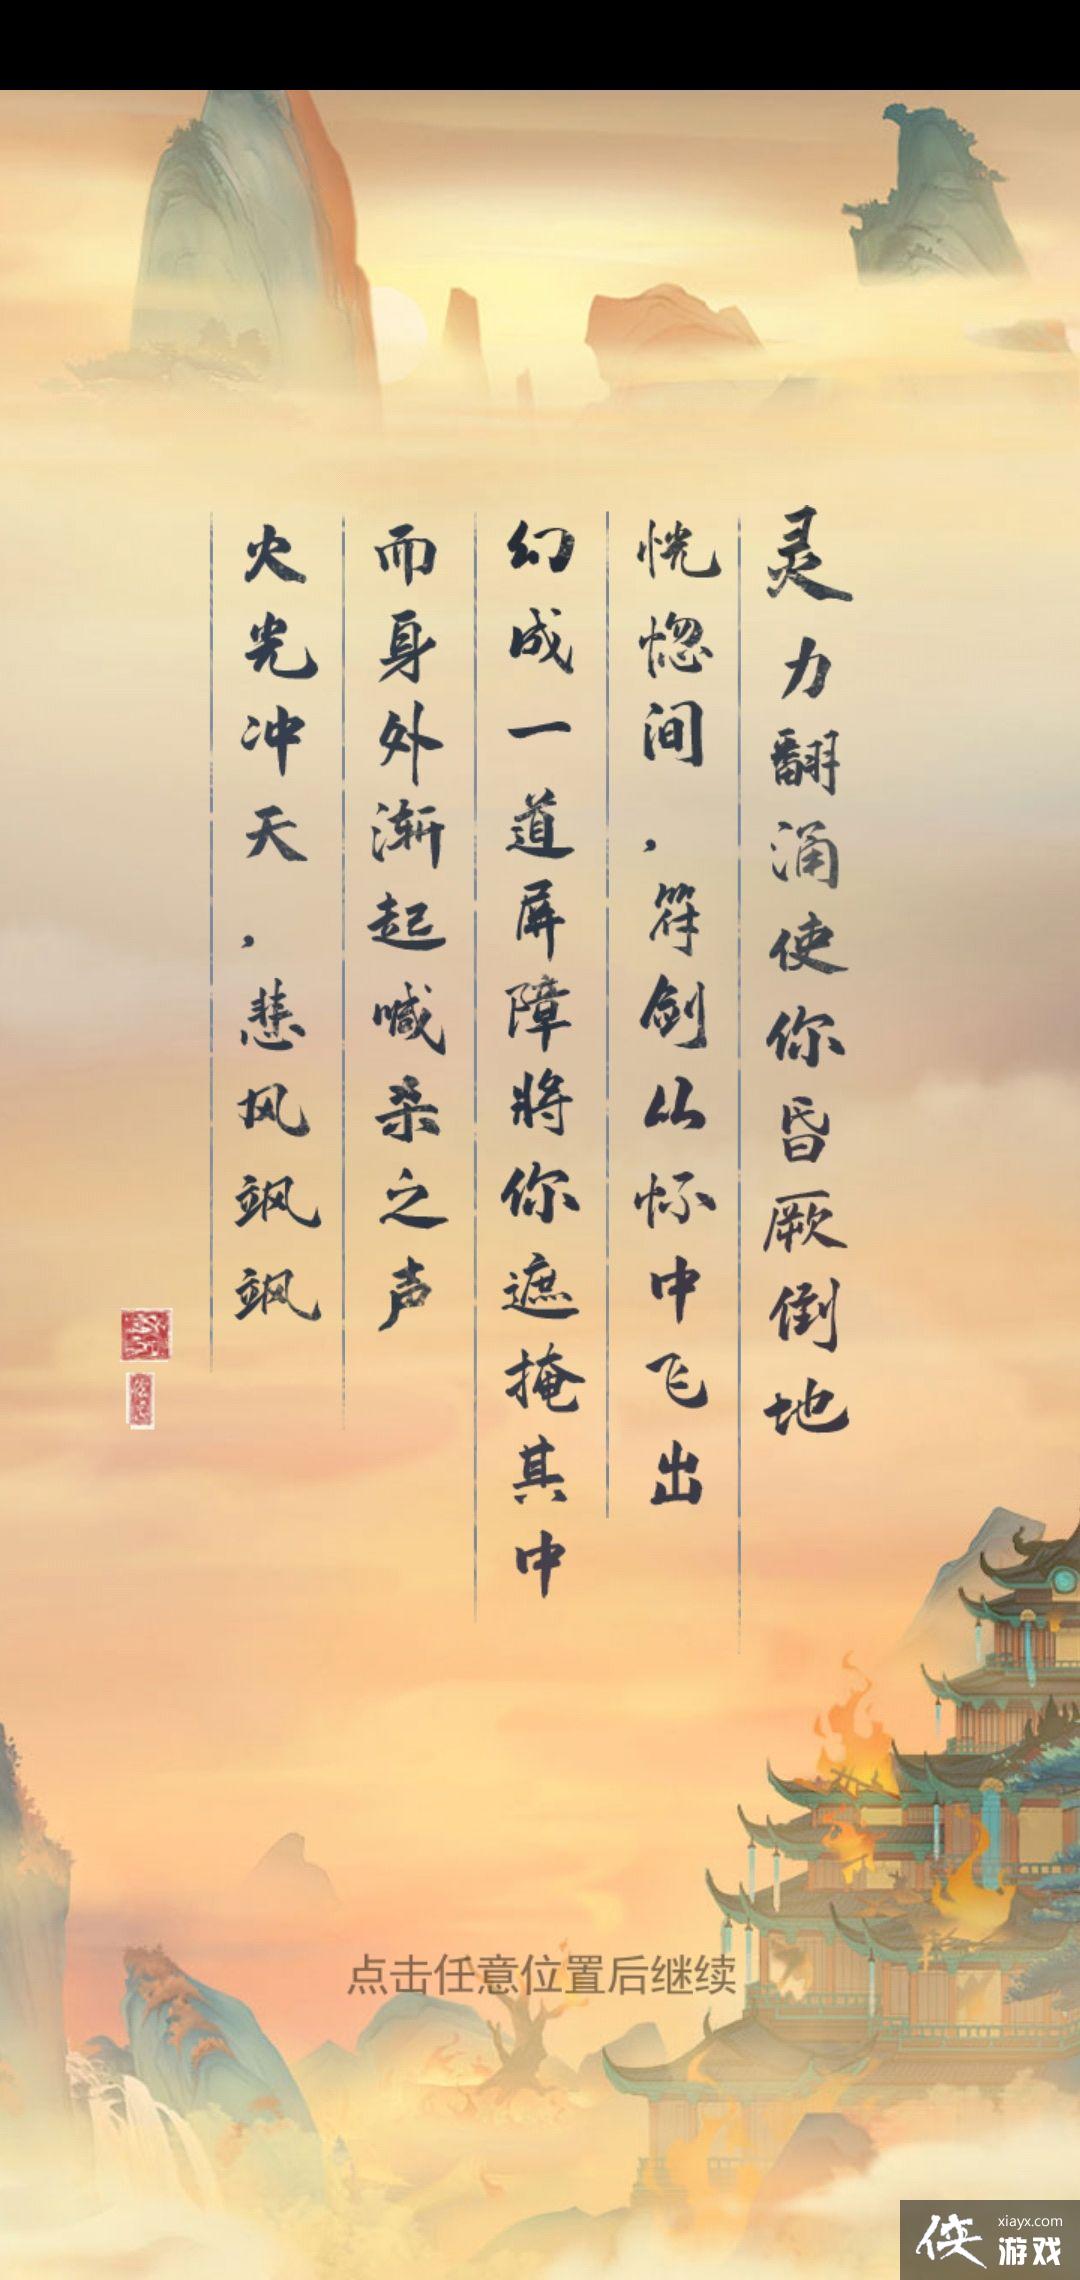 灵力翻涌使你昏厥倒地
恍惚间，符剑从怀中飞出
幻成一道屏障将你遮掩其中
而身外渐起喊杀之声
火光冲天，悲风飒飒
点击任意位置后继续
侠
xiayx.com
游戏